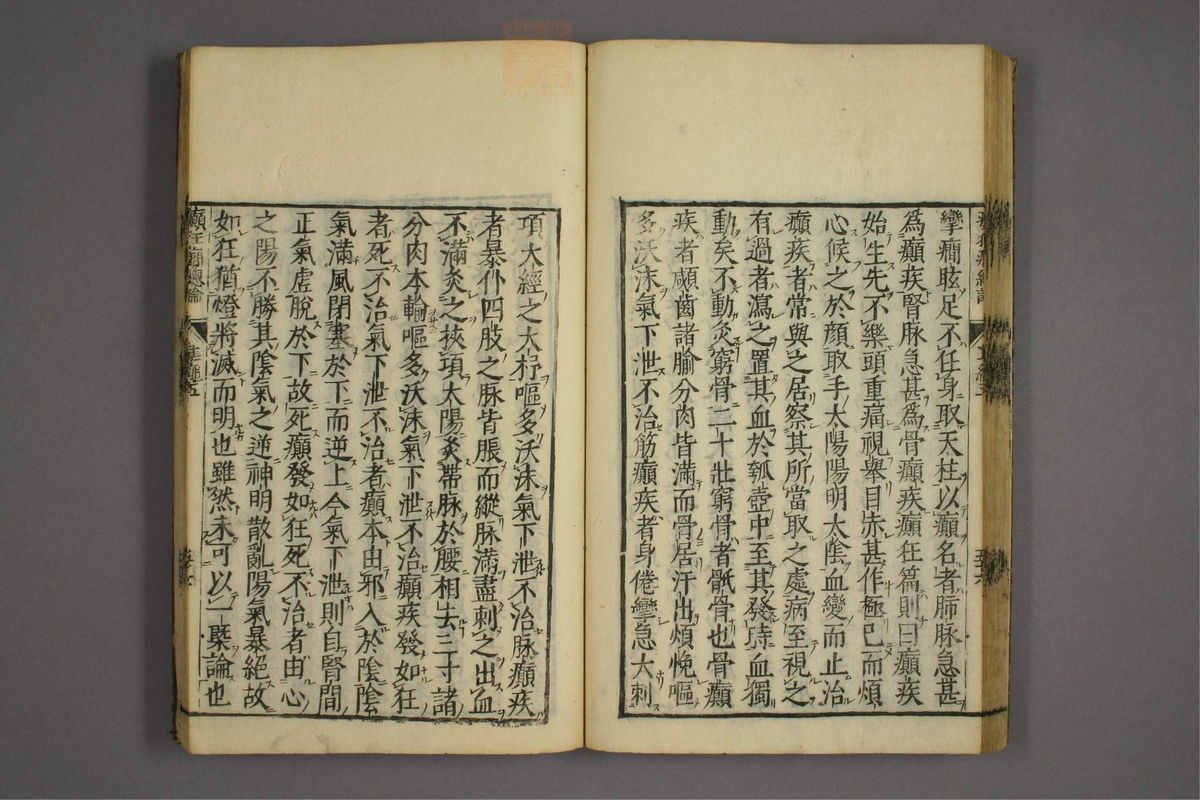 攣癇眩足不任身取天柱以癲名者肺脉急甚
爲癲疾腎脉急甚爲骨癲疾癲狂篇則曰癲疾
始生先不樂頭重痛視舉目赤甚作極已而煩
心候之於顔取手太陽陽明太陰血變而止治
癲疾者常與之居察其所當取之處病至視之
有過者瀉之置其血於瓠壺中至其發時血獨
動矣不動灸窮骨二十壯窮骨者骶骨也骨癲
疾者顑齒諸腧分肉皆滿而骨居汗出煩悗嘔
多沃沫氣下泄不治筋癲疾者身倦攣急大刺
項大經之大杼嘔多沃沫氣下泄不治脉癲疾
者暴仆四肢之脉皆脹而縱脉滿盡刺之出血
不滿灸之挾項太陽灸帶脉於腰相去三寸諸
分肉本輸嘔多沃沫氣下泄不治癲疾發如狂
者死不治氣下泄不治者癲本由邪入於陰陰
氣滿風閉塞於下而逆上今氣下泄則自腎間
正氣虚脱於下故死癲發如狂死不治者由心
之陽不勝其陰氣之逆神明散亂陽氣暴絶故
如狂猶燈將滅而明也雖然未可以一槩論也
癲狂癇總論